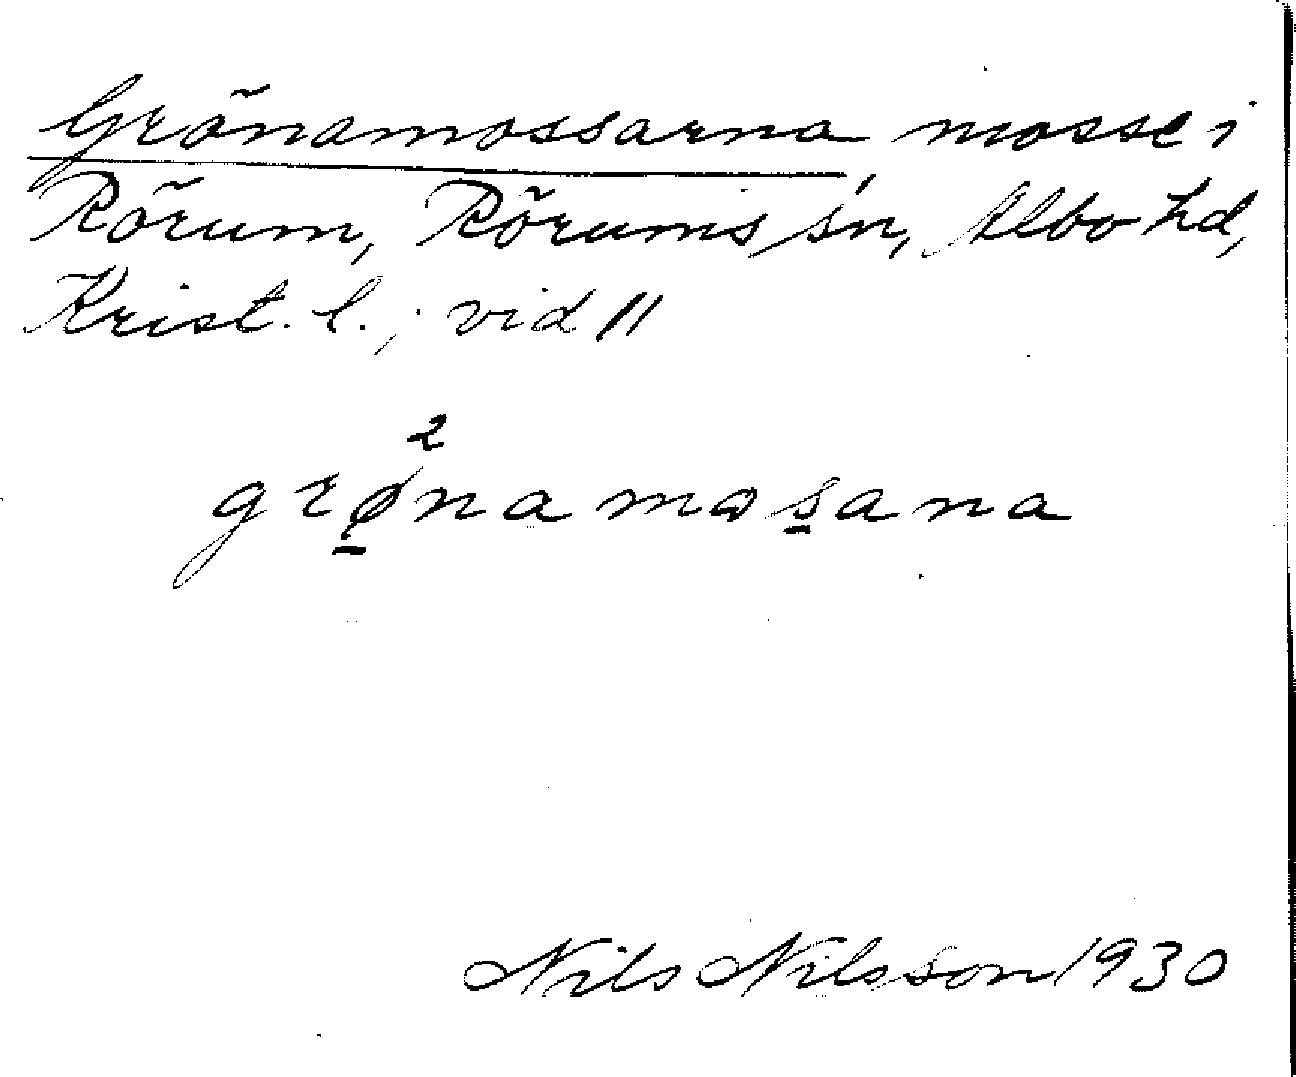 Grönamossarna mosse i
Rörum, Rörums sn, Albo hd,
Krist. l.; vid 11
grø̱²namos̱ana
Nils Nilsson 1930